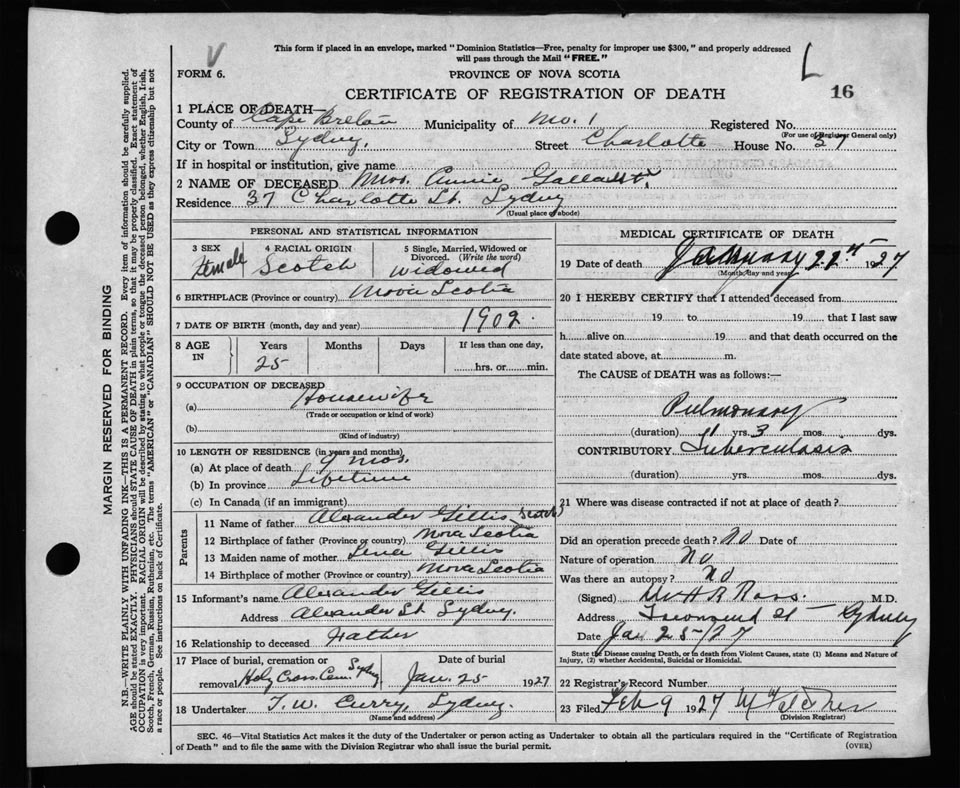 This form if placed in an envelope, marked "Dominion Statistics—Free, penalty for improper use $300," and properly addressed
will pass through the Mail "FREE."
V
L
FORM 6.
PROVINCE OF NOVA SCOTIA
CERTIFICATE OF REGISTRATION OF DEATH
16
1 PLACE OF DEATH—
County of Cape Breton Municipality of No. 1 Registered No.
(For use of Registrar General only)
City or Town Sydney, Street Charlotte House No. 37
If in hospital or institution, give name
2 NAME OF DECEASED Mrs. Annie Gallant.
Residence 37 Charlotte St. Sydney
(Usual place of abode)
PERSONAL AND STATISTICAL INFORMATION
3 SEX 4 RACIAL ORIGIN 5 Single, Married, Widowed or
Divorced. (Write the word)
Female Scotch Widowed
6 BIRTHPLACE (Province or country) Nova Scotia
7 DATE OF BIRTH (month, day and year) 1902.
8 AGE IN Years Months Days If less than one day,
25 hrs. or min.
9 OCCUPATION OF DECEASED
(a) Housewife
(Trade or occupation or kind of work)
(b)
(Kind of industry)
10 LENGTH OF RESIDENCE (in years and months)
(a) At place of death 9 mos.
(b) In province Lifetime
(c) In Canada (if an immigrant)
Parents
11 Name of father Alexander Gillis Scotch
12 Birthplace of father (Province or country) Nova Scotia
13 Maiden name of mother Gillis
14 Birthplace of mother (Province or country) Nova Scotia
15 Informant's name Alexander Gillis
Address Alexander St. Sydney.
16 Relationship to deceased Father
17 Place of burial, cremation or Date of burial
removal Holy Cross Cem. Sydney Jan. 25 1927
18 Undertaker T. W. Curry, Sydney.
(Name and address)
MEDICAL CERTIFICATE OF DEATH
19 Date of death January 22nd 1927
(Month, day and year)
20 I HEREBY CERTIFY that I attended deceased from
19 to 19 that I last saw
h alive on 19 and that death occurred on the
date stated above, at m.
The CAUSE of DEATH was as follows:—
Pulmonary
(duration) yrs. 3 mos. dys.
CONTRIBUTORY Tuberculosis
(duration) yrs. mos. dys.
21 Where was disease contracted if not at place of death?
Did an operation precede death? No Date of
Nature of operation No
Was there an autopsy? No
(Signed) Ross. M.D.
Address Townsend St — Sydney
Date Jan 25/27
State the Disease causing Death, or in death from Violent Causes, state (1) Means and Nature of
Injury, (2) whether Accidental, Suicidal or Homicidal.
22 Registrar's Record Number
23 Filed Feb 9 1927
(Division Registrar)
SEC. 46—Vital Statistics Act makes it the duty of the Undertaker or person acting as Undertaker to obtain all the particulars required in the "Certificate of Registration
of Death" and to file the same with the Division Registrar who shall issue the burial permit.
(OVER)
MARGIN RESERVED FOR BINDING
N.B.—WRITE PLAINLY WITH UNFADING INK—THIS IS A PERMANENT RECORD. Every item of information should be carefully supplied.
AGE should be stated EXACTLY. PHYSICIANS should STATE CAUSE OF DEATH in plain terms, so that it may be properly classified. Exact statement of
OCCUPATION is very important. RACIAL ORIGIN will be described by stating to what people or tongue the deceased person belonged, whether English, Irish,
Scotch, French, German, Russian, Ruthenian, etc. The terms "AMERICAN" or "CANADIAN" SHOULD NOT BE USED as they express citizenship but not
a race or people. See instructions on back of Certificate.